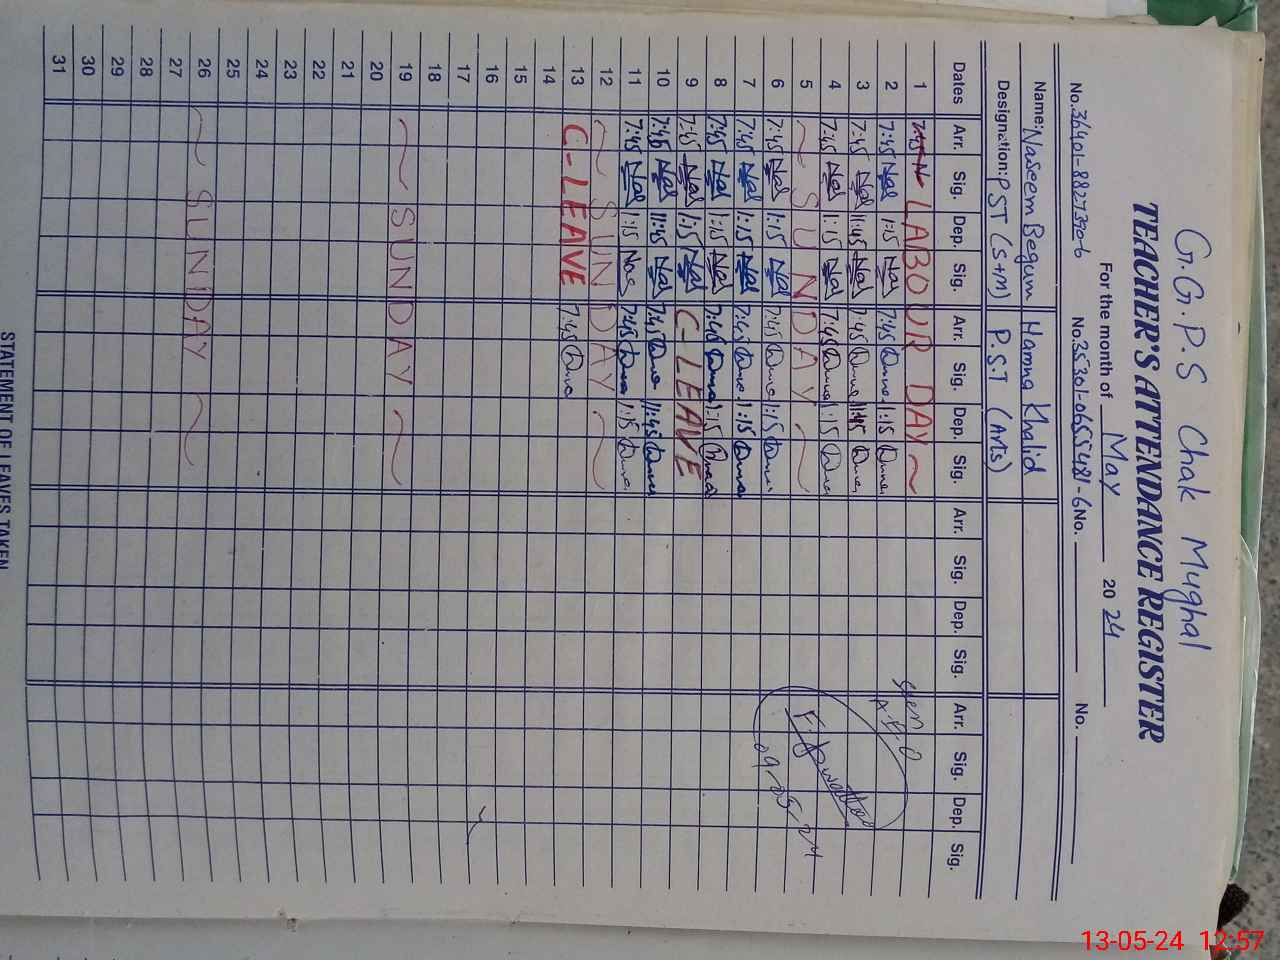 G.G.P.S Chak Mughal
TEACHER'S ATTENDANCE REGISTER
For the month of May 2024
No.36401-8827390-6 No.35301-0655481-6 No. No.
Name: Naseem Begum Hamna Khalid
Designation: PST (S+M) P.S.T (Arts)
Dates Arr. Sig. Dep. Sig. Arr. Sig. Dep. Sig. Arr. Sig. Dep. Sig. Arr. Sig. Dep. Sig.
1 7:45 LABOUR DAY
2 7:45 1:15 7:45 1:15
3 7:45 11:45 7:45 11:45
4 7:45 1:15 7:45 1:15
5 SUNDAY
6 7:45 1:15 7:45 1:15
7 7:45 1:15 7:45 1:15
8 7:45 1:15 7:45 1:15
9 7:45 1:15 C-LEAVE
10 7:45 11:45 7:45 11:45
11 7:45 1:15 7:45 1:15
12 SUNDAY
13 C-LEAVE 7:45
14
15
16
17
18
19 SUNDAY
20
21
22
23
24
25
26 SUNDAY
27
28
29
30
31
Seen
09-05-24
STATEMENT OF LEAVES TAKEN
13-05-24 12:57